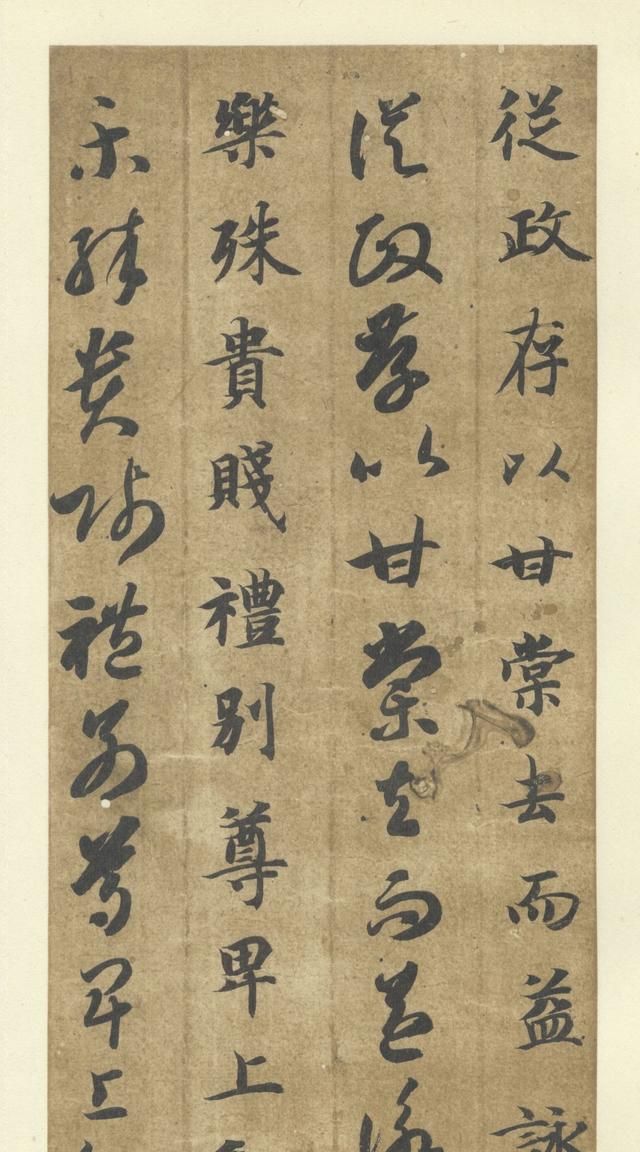 從政存以甘棠去而益詠
從政存以甘棠去而益詠
樂殊貴賤禮別尊卑上
樂殊貴賤禮別尊卑上